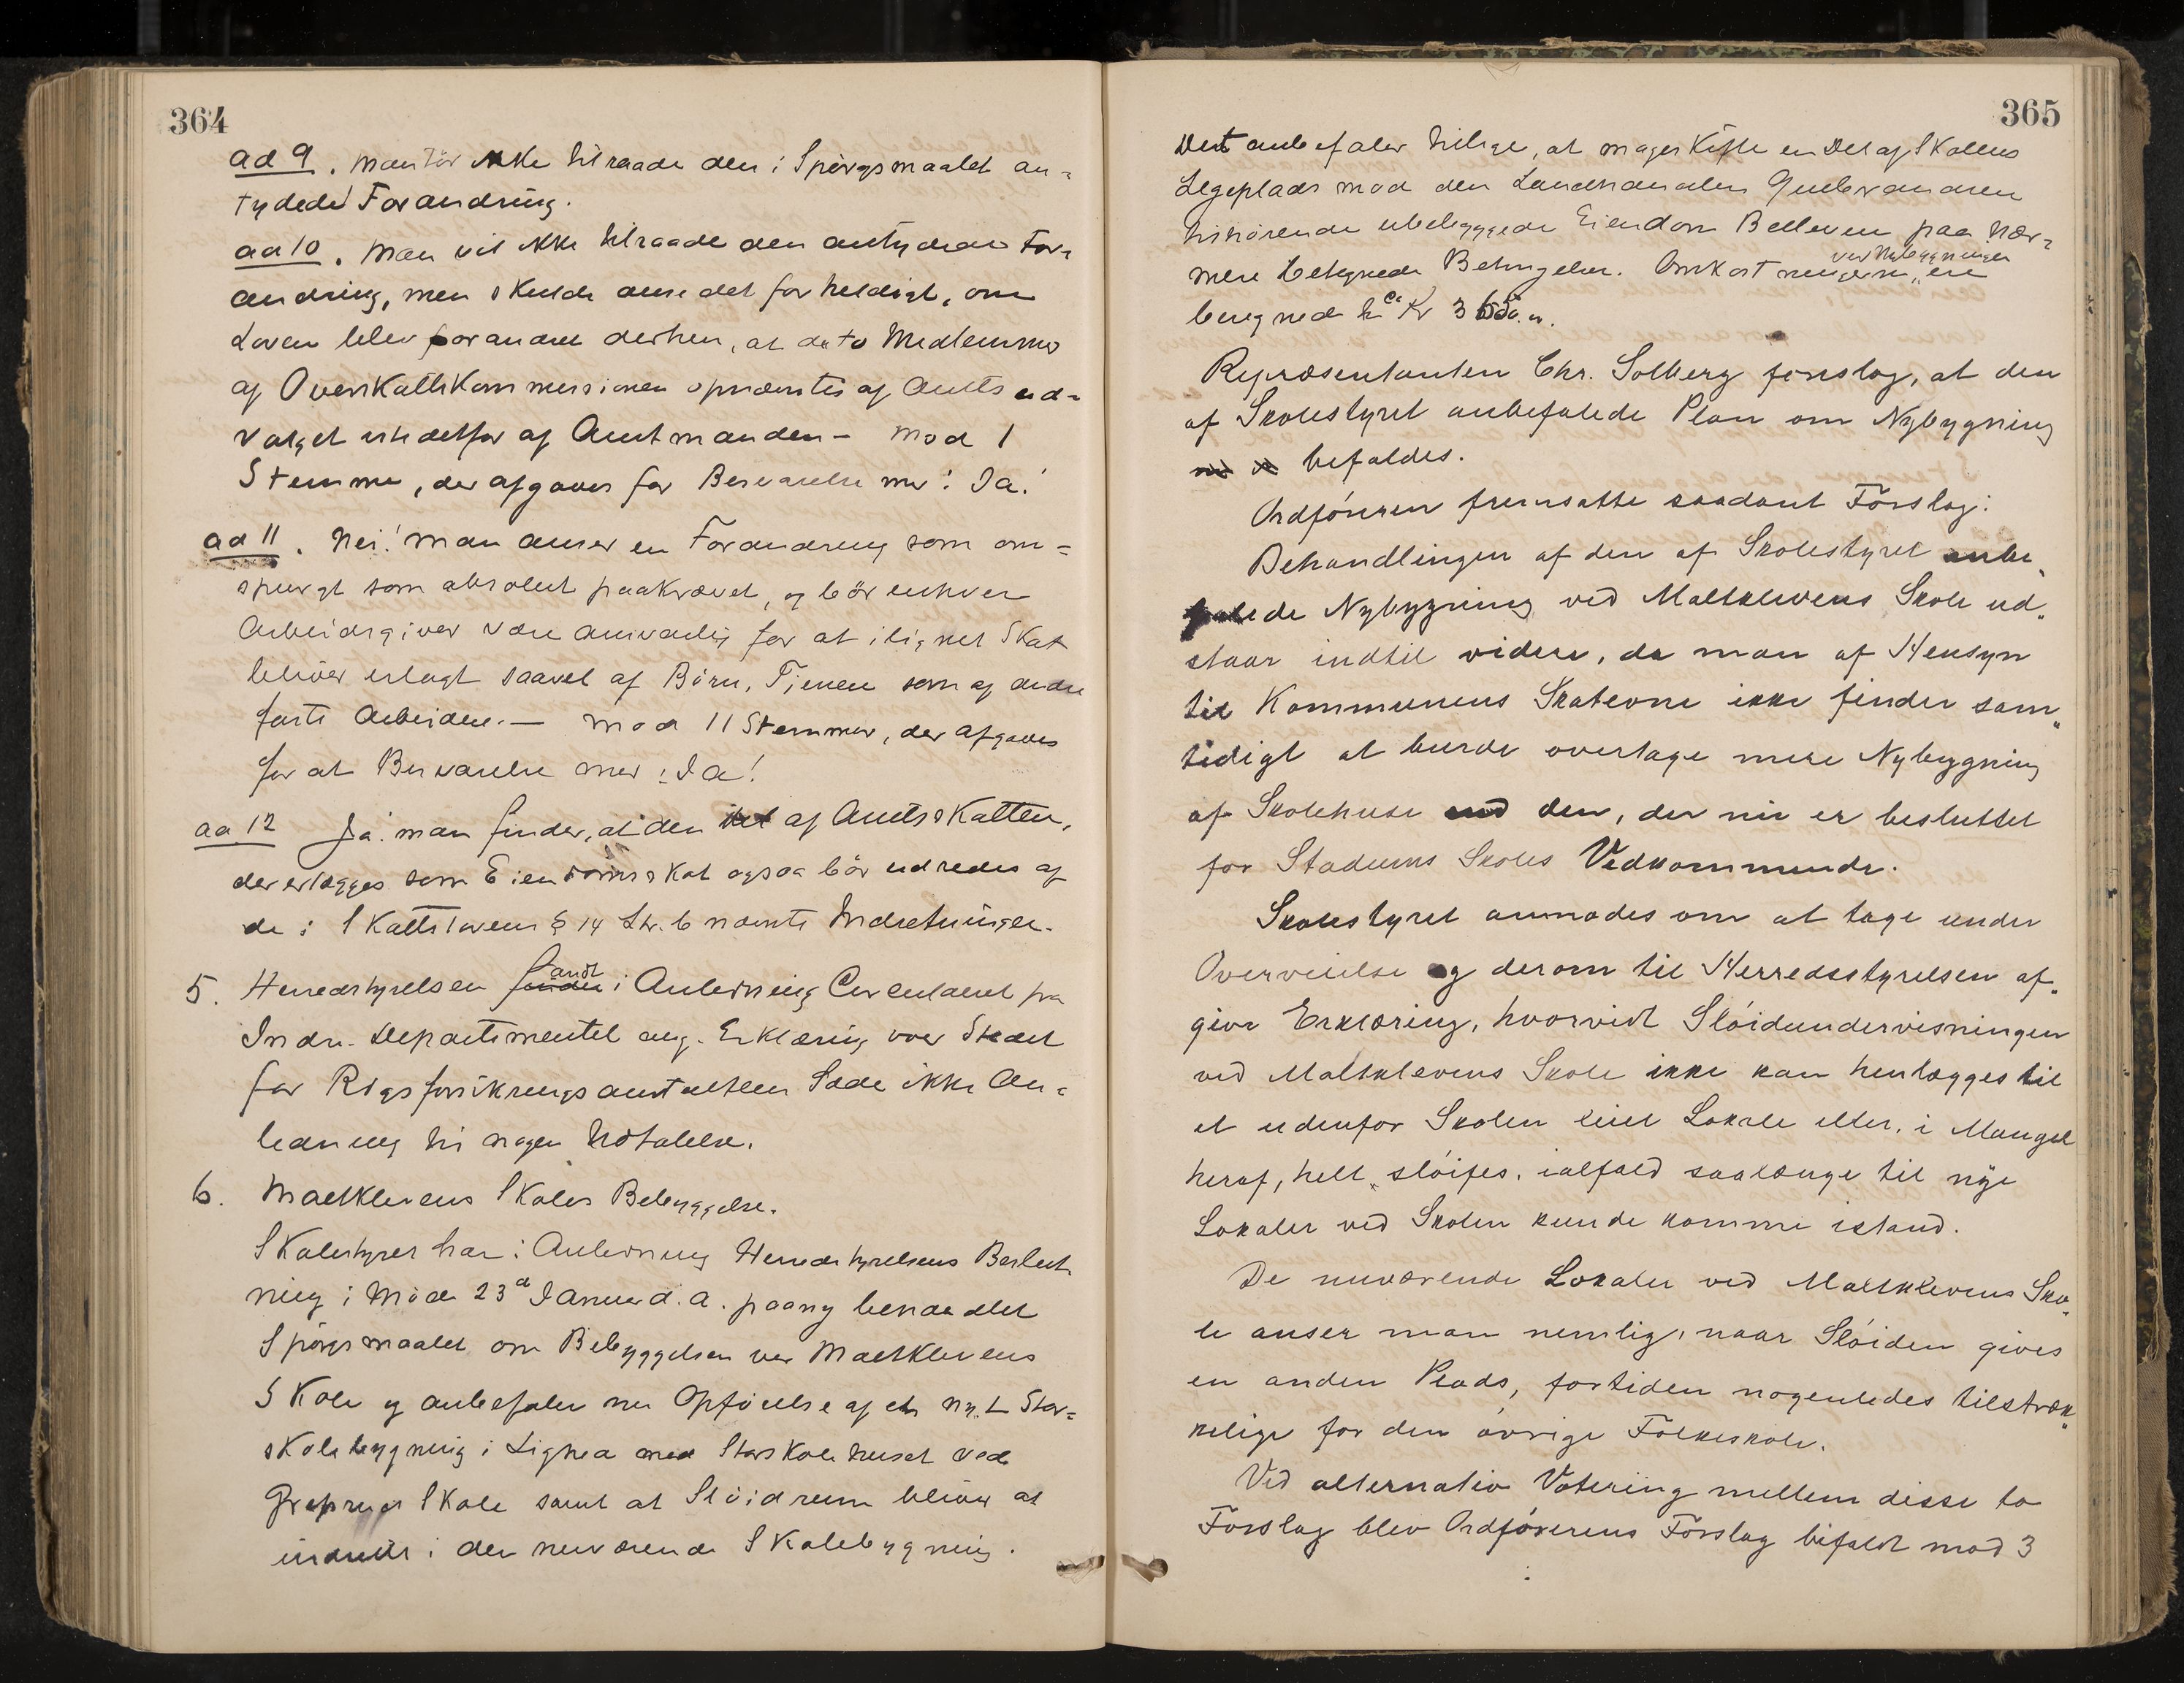 364
ad 9. Man tör ikke tilraade den i Spörgsmaalet an=
tydede Forandring.
ad 10. Man vil ikke tilraade den antydede For=
andring, men skulde anse det for heldigt, om
Loven blev forandret derhen, at de to Medlemmer
af Overskattekommissionen opnævntes af Amtsud=
valget istedetfor af Amtmanden – mod 1
Stemme, der afgaves for Besvarelse med: Ja!
ad 11. Nei! man anser en Forandring som om=
spurgt som absolut paakrævet, og bör enhver
Arbeidsgiver være ansvarlig for at ilignet Skat
bliver erlagt saavel af Börn, Tjenere som af andre
faste Arbeidere. — mod 11 Stemmer, der afgaves
for at Besvarelse med: Ja!
ad 12 Ja! man finder, at den Del af Amtsskatten,
der erlægges som Eiendomsskat ogsaa bör udredes af
de i Skattelovens § 14 Ltr. b nævnte Indretninger.
5. Herredsstyrelsen fandt i Anledning Circulæret fra
Indre-Departementet ang. Erklæring over Stedet
for Rigsforsikringsanstaltens Sæde ikke An=
ledning til nogen Udtalelse.
6. Maltklevens Skoles Bebyggelse.
Skolestyret har i Anledning Herredsstyrelsens Beslut=
ning i Möde 23d Januar d. a. paany behandlet
Spörgsmaalet om Bebyggelsen ved Maltklevens
Skole og anbefaler nu Opförelse af et nyt Stor=
skolebygning i Lighed med Storskolehuset ved
Skole samt at Slöidrum bliver at
indrede i den nuværende Skolebygning.
365
Det anbefaler tillige, at mageskifte en Del af Skolens
Legeplads mod den Landhandler Gulbrandsen
tilhörende ubebyggede Eiendom Bellevue paa nær=
mere betegnede Betingelser. Omkostningerne ved Nybygningen ere
beregnede til Ca Kr 3
Repræsentanten Chr. Solberg foreslog, at den
af Skolestyret anbefalede Plan om Nybygning
bifaldes.
Ordföreren fremsatte saadant Forslag:
Behandlingen af den af Skolestyret anbe„
falede Nybygning ved Maltklevens Skole ud„
staar indtil videre, da man af Hensyn
til Kommunens Skatevne ikke finder sam„
tidigt at burde overtage mere Nybygning
af Skolehuse end den, der nu er besluttet
for Stadums Skoles Vedkommende.
Skolestyret anmodes om at tage under
Overveielse og derom til Herredsstyrelsen af„
give Erklæring, hvorvidt Slöidundervisningen
ved Maltklevens Skole ikke kan henlægges til
et udenfor Skolen leiet Lokale eller, i Mangel
heraf, helt slöifes, ialfald saalænge til nye
Lokaler ved Skolen kunde komme istand.
De nuværende Lokaler ved Maltklevens Sko„
le anser man nemlig, naar Slöiden gives
en anden Plads, fortiden nogenledes tilstræk„
kelige for den övrige Folkeskole.
Ved alternativ Votering mellem disse to
Forslag blev Ordförerens Forslag bifaldt mod 3